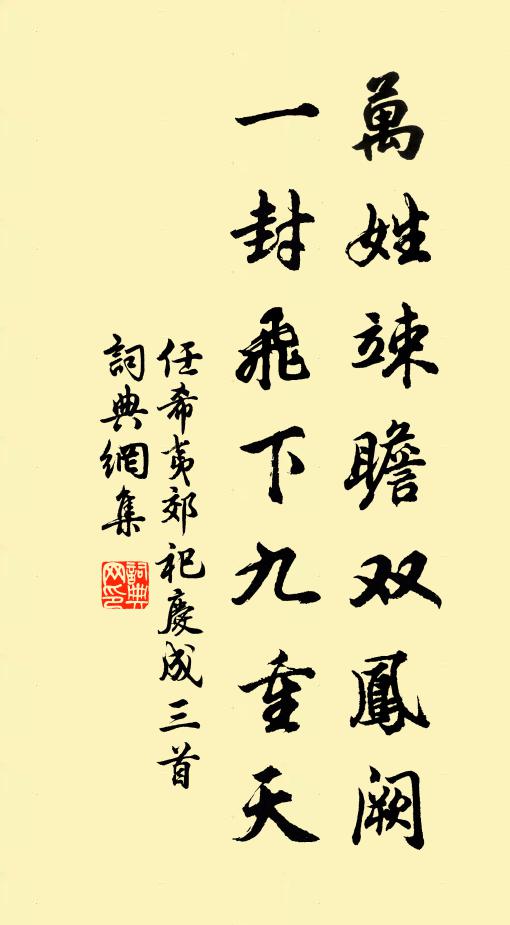 萬姓竦瞻双鳳阙
一封飛下九重天
任希夷郊祀慶成三首
詞典網集
詞典网印